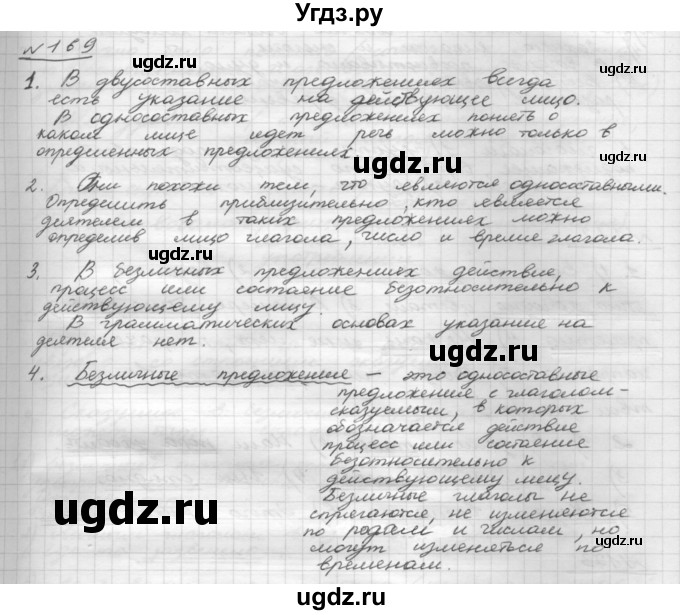 Угдз.ру
№169
1. В двусоставных предложениях всегда
есть указание на действующее лицо.
В односоставных предложениях понять о
каком лице идет речь можно только в
определенных предложениях.
2. Они похожи тем, что являются односоставными.
Определить приблизительно, кто является
деятелем в таких предложениях можно
определив лицо глагола, число и время глагола.
3. В безличных предложениях действие,
процесс или состояние безотносительно к
действующему лицу.
В грамматических основах указание на
деятеля нет.
4. Безличные предложение – это односоставные
предложение с глаголом-
сказуемым, в которых
обозначается действие
процесс или состояние
безотносительно к
действующему лицу.
Безличные глаголы не
спрягаются, не изменяются
по родам и числам, но
могут изменяться по
временам.
ugdz.ru
ugdz.ru
ugdz.ru
ugdz.ru
ugdz.ru
ugdz.ru
ugdz.ru
ugdz.ru
ugdz.ru
ugdz.ru
ugdz.ru